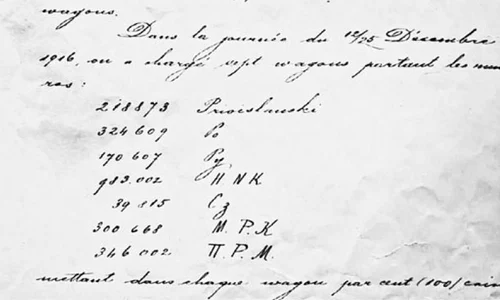 wagons.
Dans la journée du 12/25 Décembre
1916, on a chargé sept wagons portant les numé
ros:
218873 Privislanski
324609 Po
170607 Ру
983.002 H N K.
39815 Сз
300668 М. Р. К
346002 П. Р. М.
mettant dans chaque wagon par cent (100) cais